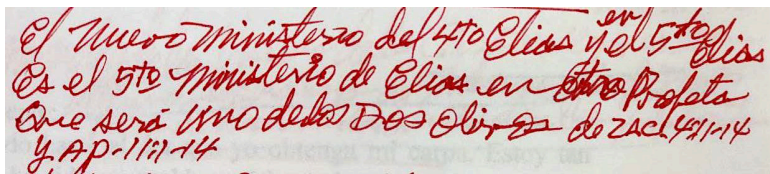 El Nuevo Ministerio del 4to Elias y en el 5to Elias
Es el 5to Ministerio de Elias en otro Profeta
Que será Uno de los Dos Olivos de ZAC. 4:1-14
y AP. 11:1-14 yo obtenga mi carpa. Estoy tan